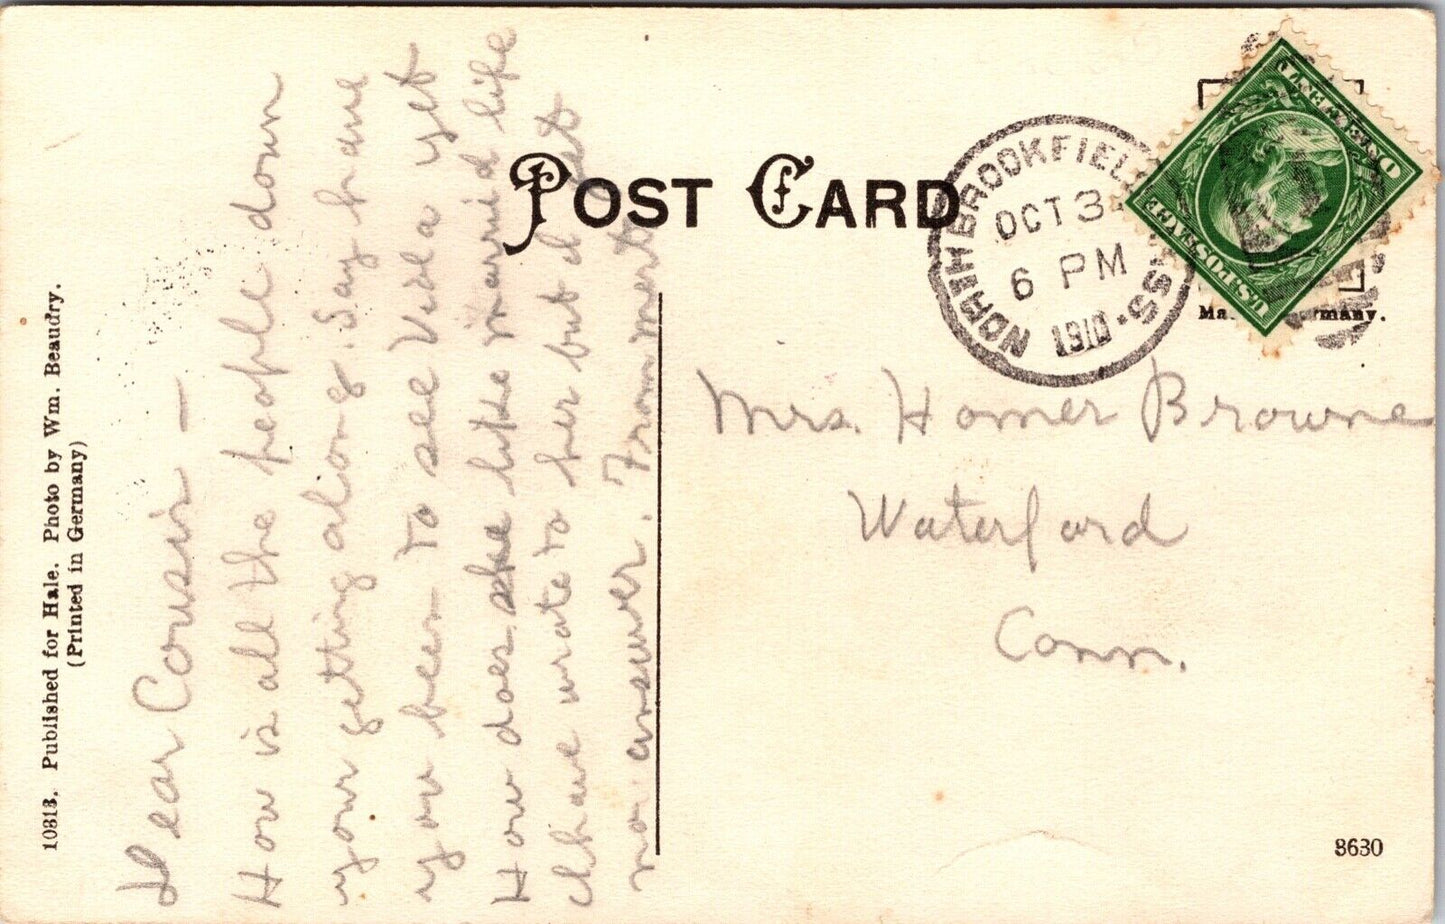 POST CARD
NORTH BROOKFIELD
OCT 3
6 PM
1910
SS.
U.S. POSTAGE
ONE CENT
Mrs. Homer Browne
Waterford
Conn.
8630
10313. Published for Hale. Photo by Wm. Beaudry.
(Printed in Germany)
Dear Cousin —
How is all the people down
your getting along. Say have
you been to see Vida yet
How does she like married life
I have wrote to her but I get
no answer. From